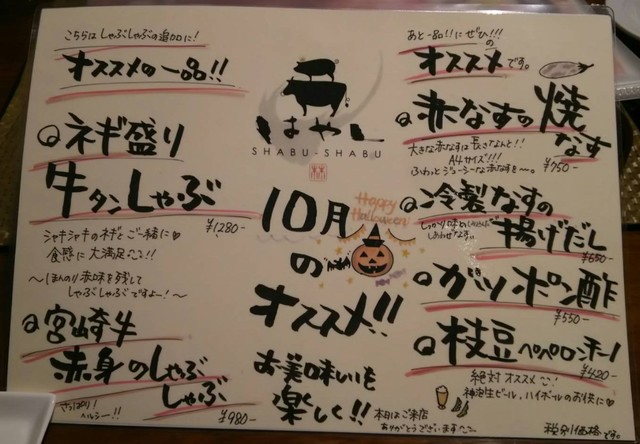 こちらは しゃぶしゃぶの追加に!
オススメの一品!!
ネギ盛り
牛タンしゃぶ
¥1280-
シャキシャキのネギとご一緒に♡
食感に大満足!!
〜ほんのり赤味を残して
しゃぶしゃぶですよー!〜
宮崎牛
赤身のしゃぶ
しゃぶ
さっぱり!
ヘルシー!!
¥980-
はやし
SHABU-SHABU
林
10月
の
オススメ!!
Happy
Halloween!
お美味いを
楽しく!!
本日はご来店
ありがとうございます
あと一品!!にぜひ!!!
の
オススメです。
赤なすの焼
なす
大きな赤なすは長さなんと!!
A4サイズ!!!
ふわっとジューシーな赤なすを〜。
¥750-
冷製なすの
揚げだし
しあわせなす。
¥650-
ガツポン酢
¥550-
枝豆ペペロンチーノ
¥420-
絶対オススメ
神泡生ビール、ハイボールのお供に♡
税別価格です。